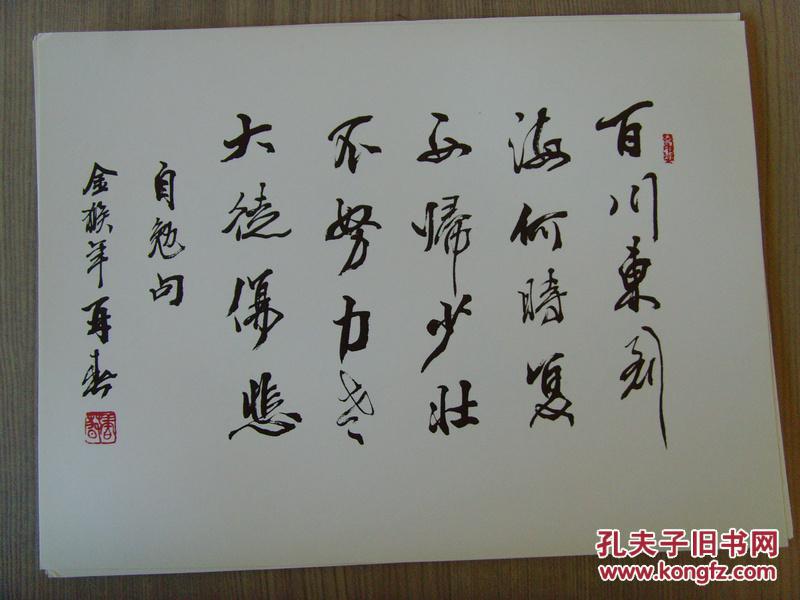 百川東到
海何時复
西歸少壯
不努力老
大徒傷悲
自勉句
金猴年 再
孔夫子旧书网
www.kongfz.com